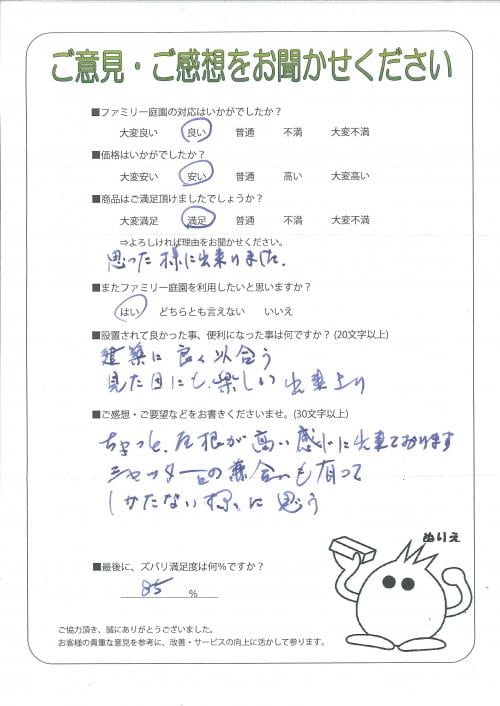 ご意見・ご感想をお聞かせください
■ファミリー庭園の対応はいかがでしたか？
大変良い 良い 普通 不満 大変不満
■価格はいかがでしたか？
大変安い 安い 普通 高い 大変高い
■商品はご満足頂けましたでしょうか？
大変満足 満足 普通 不満 大変不満
⇒よろしければ理由をお聞かせください。
思った様に出来りました。
■またファミリー庭園を利用したいと思いますか？
はい どちらとも言えない いいえ
■設置されて良かった事、便利になった事は何ですか？(20文字以上)
建築に良く似合う
見た目にも、楽しい出来上り
■ご感想・ご要望などをお書きくださいませ。(30文字以上)
ちょっと、屋根が高い感じに出来ております
シャッターとの兼合いも有って
しかたない様に思う
ぬりえ
■最後に、ズバリ満足度は何％ですか？
85 ％
ご協力頂き、誠にありがとうございました。
お客様の貴重な意見を参考に、改善・サービスの向上に活かして参ります。